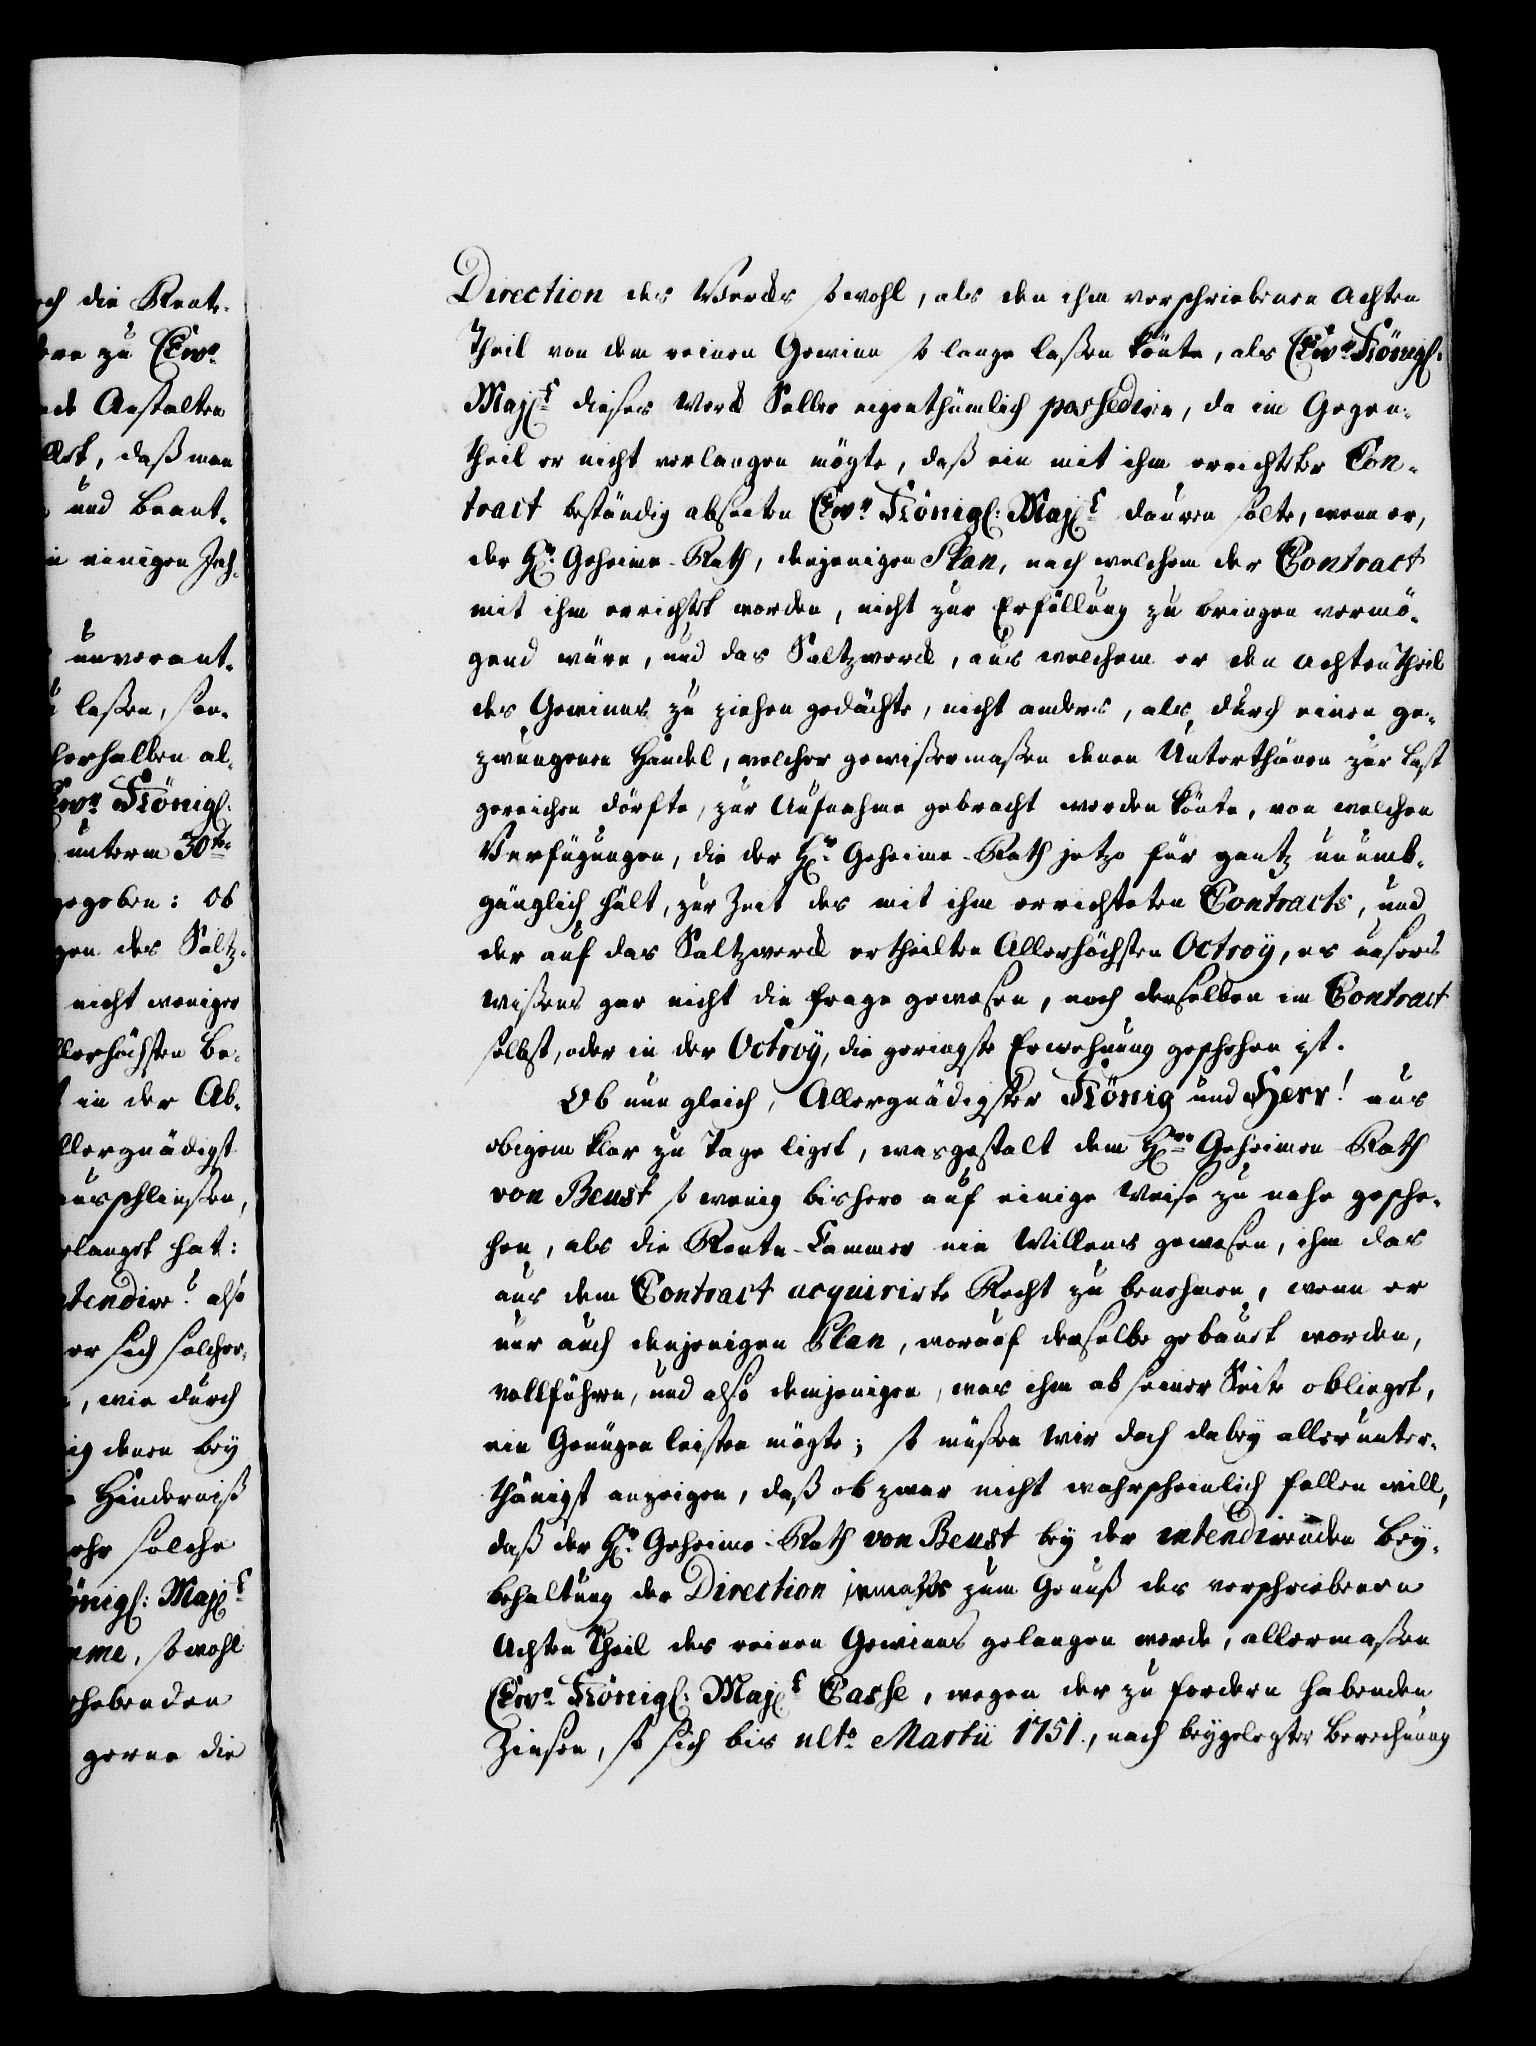 Direction des Wercks sowohl, als den ihm verschriebenen Achten
Theil von dem reinen Gewinn so lange laßen könte, als Ew.r Königl:
Maj.t dieses Werck Selber eigenthümlich possediren, da im Gegen-
theil er nicht verlangen mögte, daß ein mit ihm errichteter Con-
tract beständig abseiten Ew.r Königl: Maj.t dauren solte, wenn er,
der H.r Geheime-Rath, denjenigen Plan, nach welchem der Contract
mit ihm errichtet worden, nicht zur Erfüllung zu bringen vermö-
gend wäre, und das Saltzwerck, aus welchem er den Achten Theil
des Gewinns zu ziehen gedächte, nicht anders, als durch einen ge-
zwungenen Handel, welcher gewißermaßen denen Unterthanen zur Last
gereichen dörfte, zur Aufnahme gebracht werden könte, von welchen
Verfügungen, die der H.r Geheime-Rath jetzo für gantz unumb-
gänglich hält, zur Zeit des mit ihm errichteten Contracts, und
der auf das Saltzwerck ertheilten Allerhöchsten Octroÿ, es unsers
wißens gar nicht die Frage gewesen, noch derselben im Contract
selbst, oder in der Octroÿ, die geringste Erwehnung geschehen ist.
Ob nun gleich, Allergnädigster König und Herr! aus
obigem klar zu Tage liget, wasgestalt dem H.rn Geheimen-Rath
von Beust so wenig bishero auf einige Weise zu nahe gesche-
hen, als die Rente-Cammer nie Willens gewesen, ihm das
aus dem Contract acquirirte Recht zu benehmen, wenn er
nur auch denjenigen Plan, worauf derselbe gebauet worden,
vollführen, und also demjenigen, was ihm ab seiner Seite oblieget,
ein Genügen leisten mögte; so müßen Wir doch dabey allerunter-
thänigst anzeigen, daß ob zwar nicht wahrscheinlich fallen will,
daß der H.r Geheime-Rath von Beust bey der intendirenden Bey-
behaltung der Direction jemahls zum Genuß des verschriebenen
Achten Theil des reinen Gewinns gelangen werde, allermaßen
Ew.r Königl: Maj.t Casse, wegen der zu fordern habenden
Zinsen, so sich bis ult.o Martii 1751., nach beygelegter Berechnung